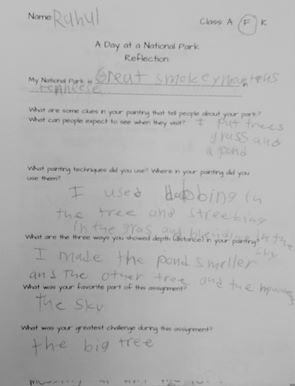 Name: Rahul Class: A F K
A Day at a National Park
Reflection
My National Park is Great smokey
What are some clues in your painting that tell people about your park?
What can people expect to see when they visit? I Put trees
grass and
a pond
What painting techniques did you use? Where in your painting did you
use them?
I used dabbing in
the tree and streeking
in the gras and blending in the
sky
What are the three ways you showed depth (distance) in your painting?
I made the pond smaller
and the other tree and the
What was your favorite part of this assignment?
the sky
What was your greatest challenge during this assignment?
the big tree